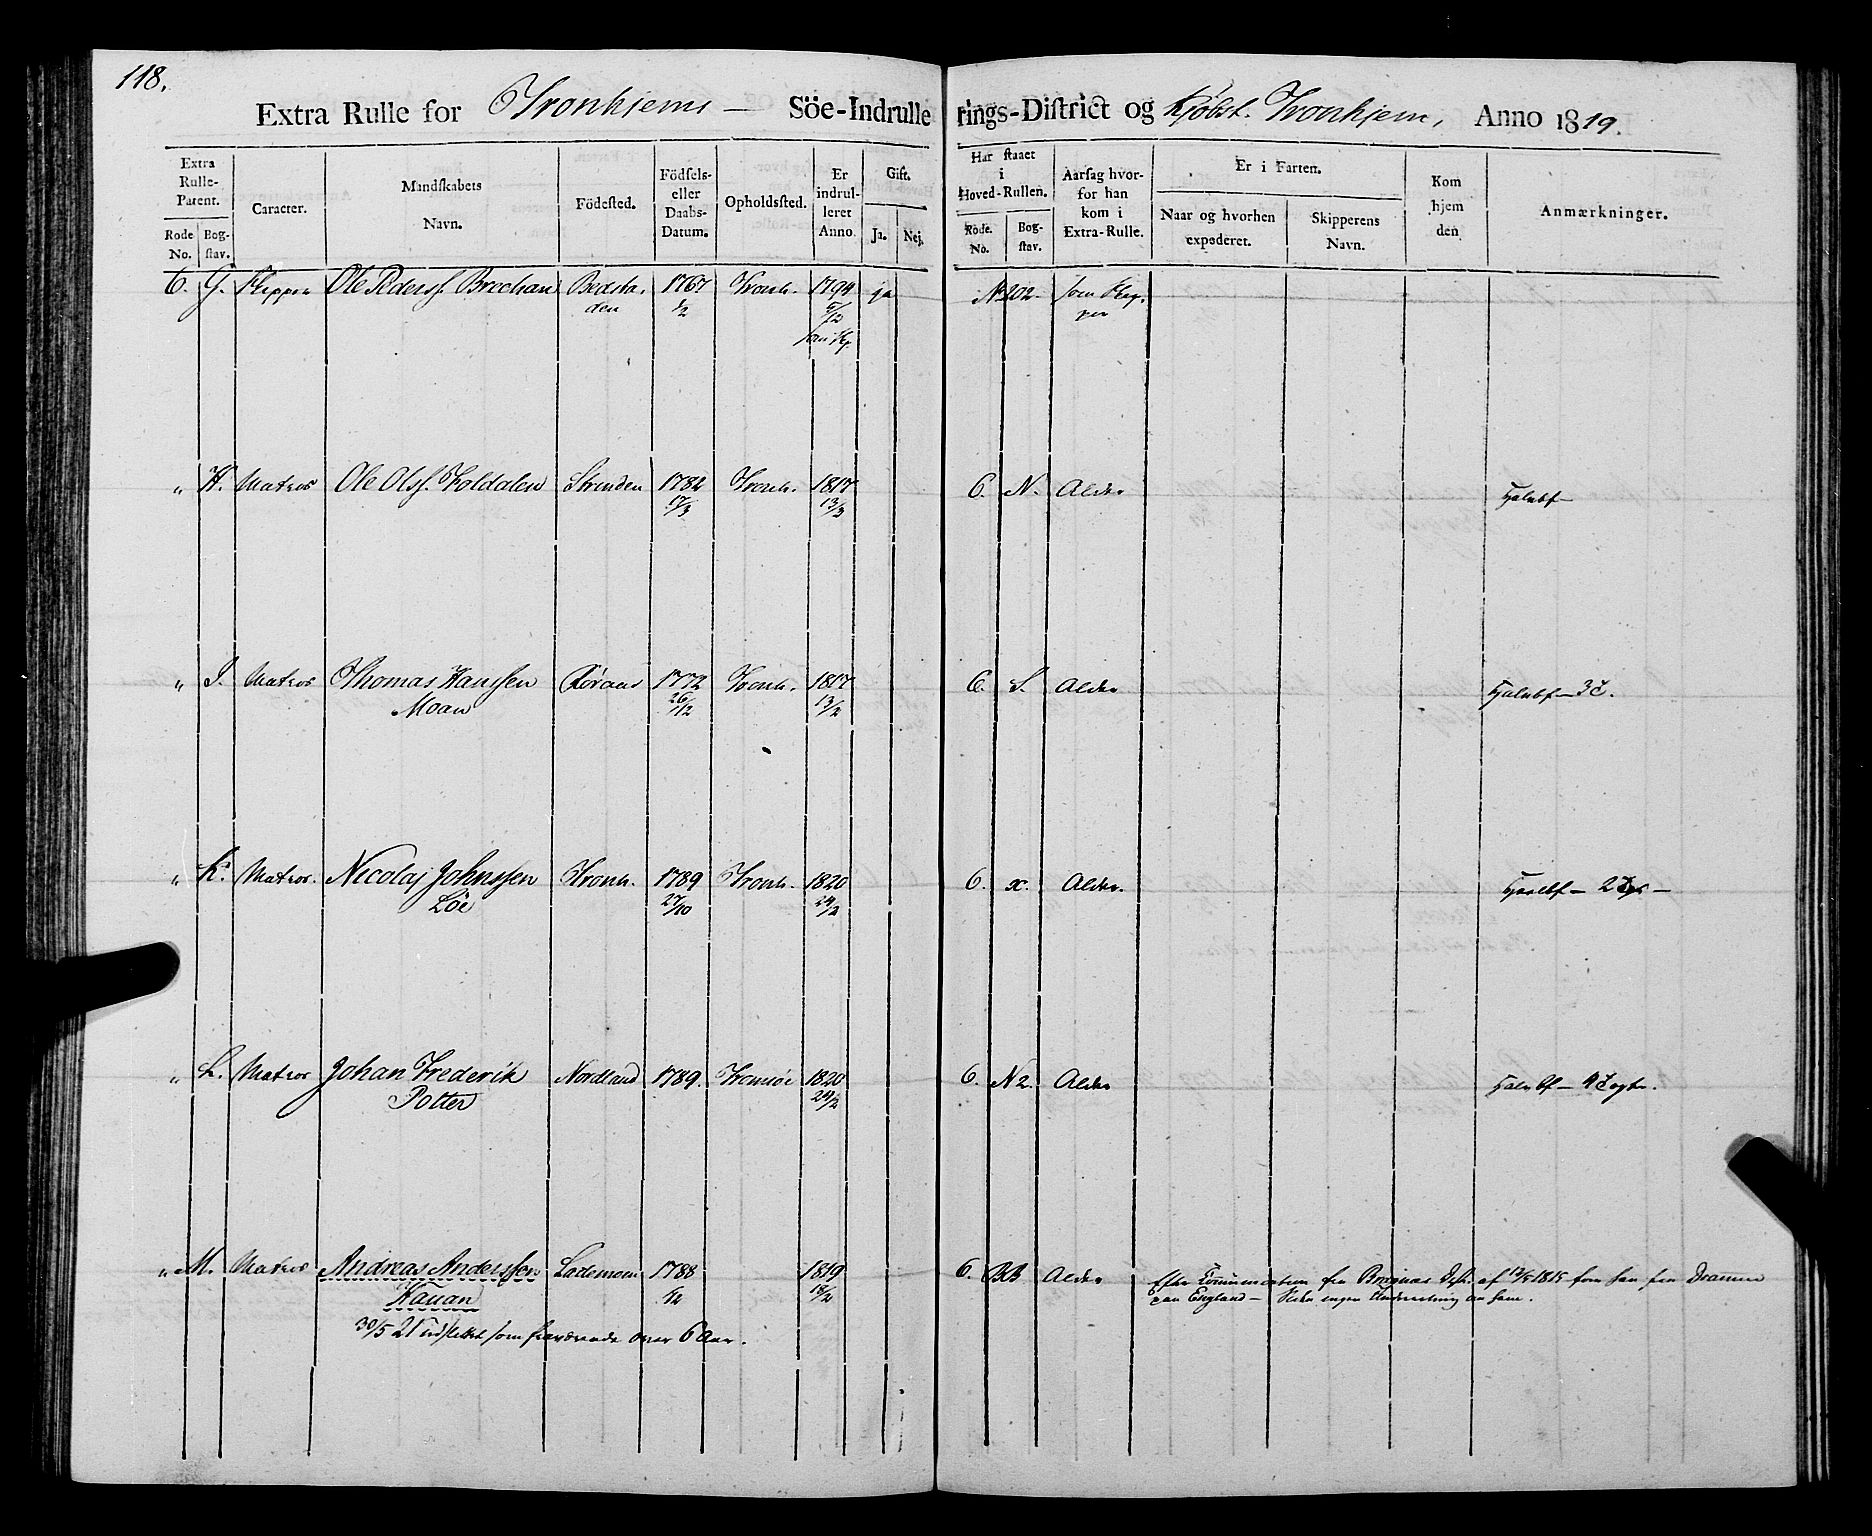 118.
Extra Rulle for Tronhjems — Söe-Indrulle rings-District og Kjöbst. Tronhjem, Anno 1819.
Extra Rulle-Patent.
Rode No.
Bog-stav.
Caracter.
Mandskabets Navn.
Födested.
Födsels- eller Daabs-Datum.
Opholdssted.
Er indrulleret Anno
Gift.
Ja.
Nej.
Har staaet i Hoved-Rullen.
Rode. No.
Bog-stav.
Aarsag hvorfor han kom i Extra-Rulle.
Er i Farten.
Naar og hvorhen expederet.
Skipperens Navn.
Kom hjem den
Anmærkninger.
6. G. Skipper Ole Pederss. Brechan 1767 Tronh. 1794 ja No 202. som Skip-
1/2 5/12 per
som Sk.
" H. Matros Ole Olss. Toldalen Strinden 1782 Tronh. 1817 6. N. Alder
17/3 13/3
" I. Matros Thomas Hanssen 1772 Tronh. 1817 6. S. Alder
Moan 26/12 13/2
" K. Matros. Nicolaj Johnssen Tronh. 1789 Tronh. 1820 6. x. Alder.
Löe 27/10 24/2
" L. Matros Johan Frederik Nordland 1789. Tromsöe 1820 6. N 2. Alder
Potter 24/2
" M. Matros Andreas Anderssen Lademoen 1788 1819 6. BB Alder Efter Communication fra af 12/5 1815 fra Drammen
Kauan 1/12 18/2 paa England — Siden ingen Underretning om ham.
30/5 21 udslettet som fraværende over 6 Aar.